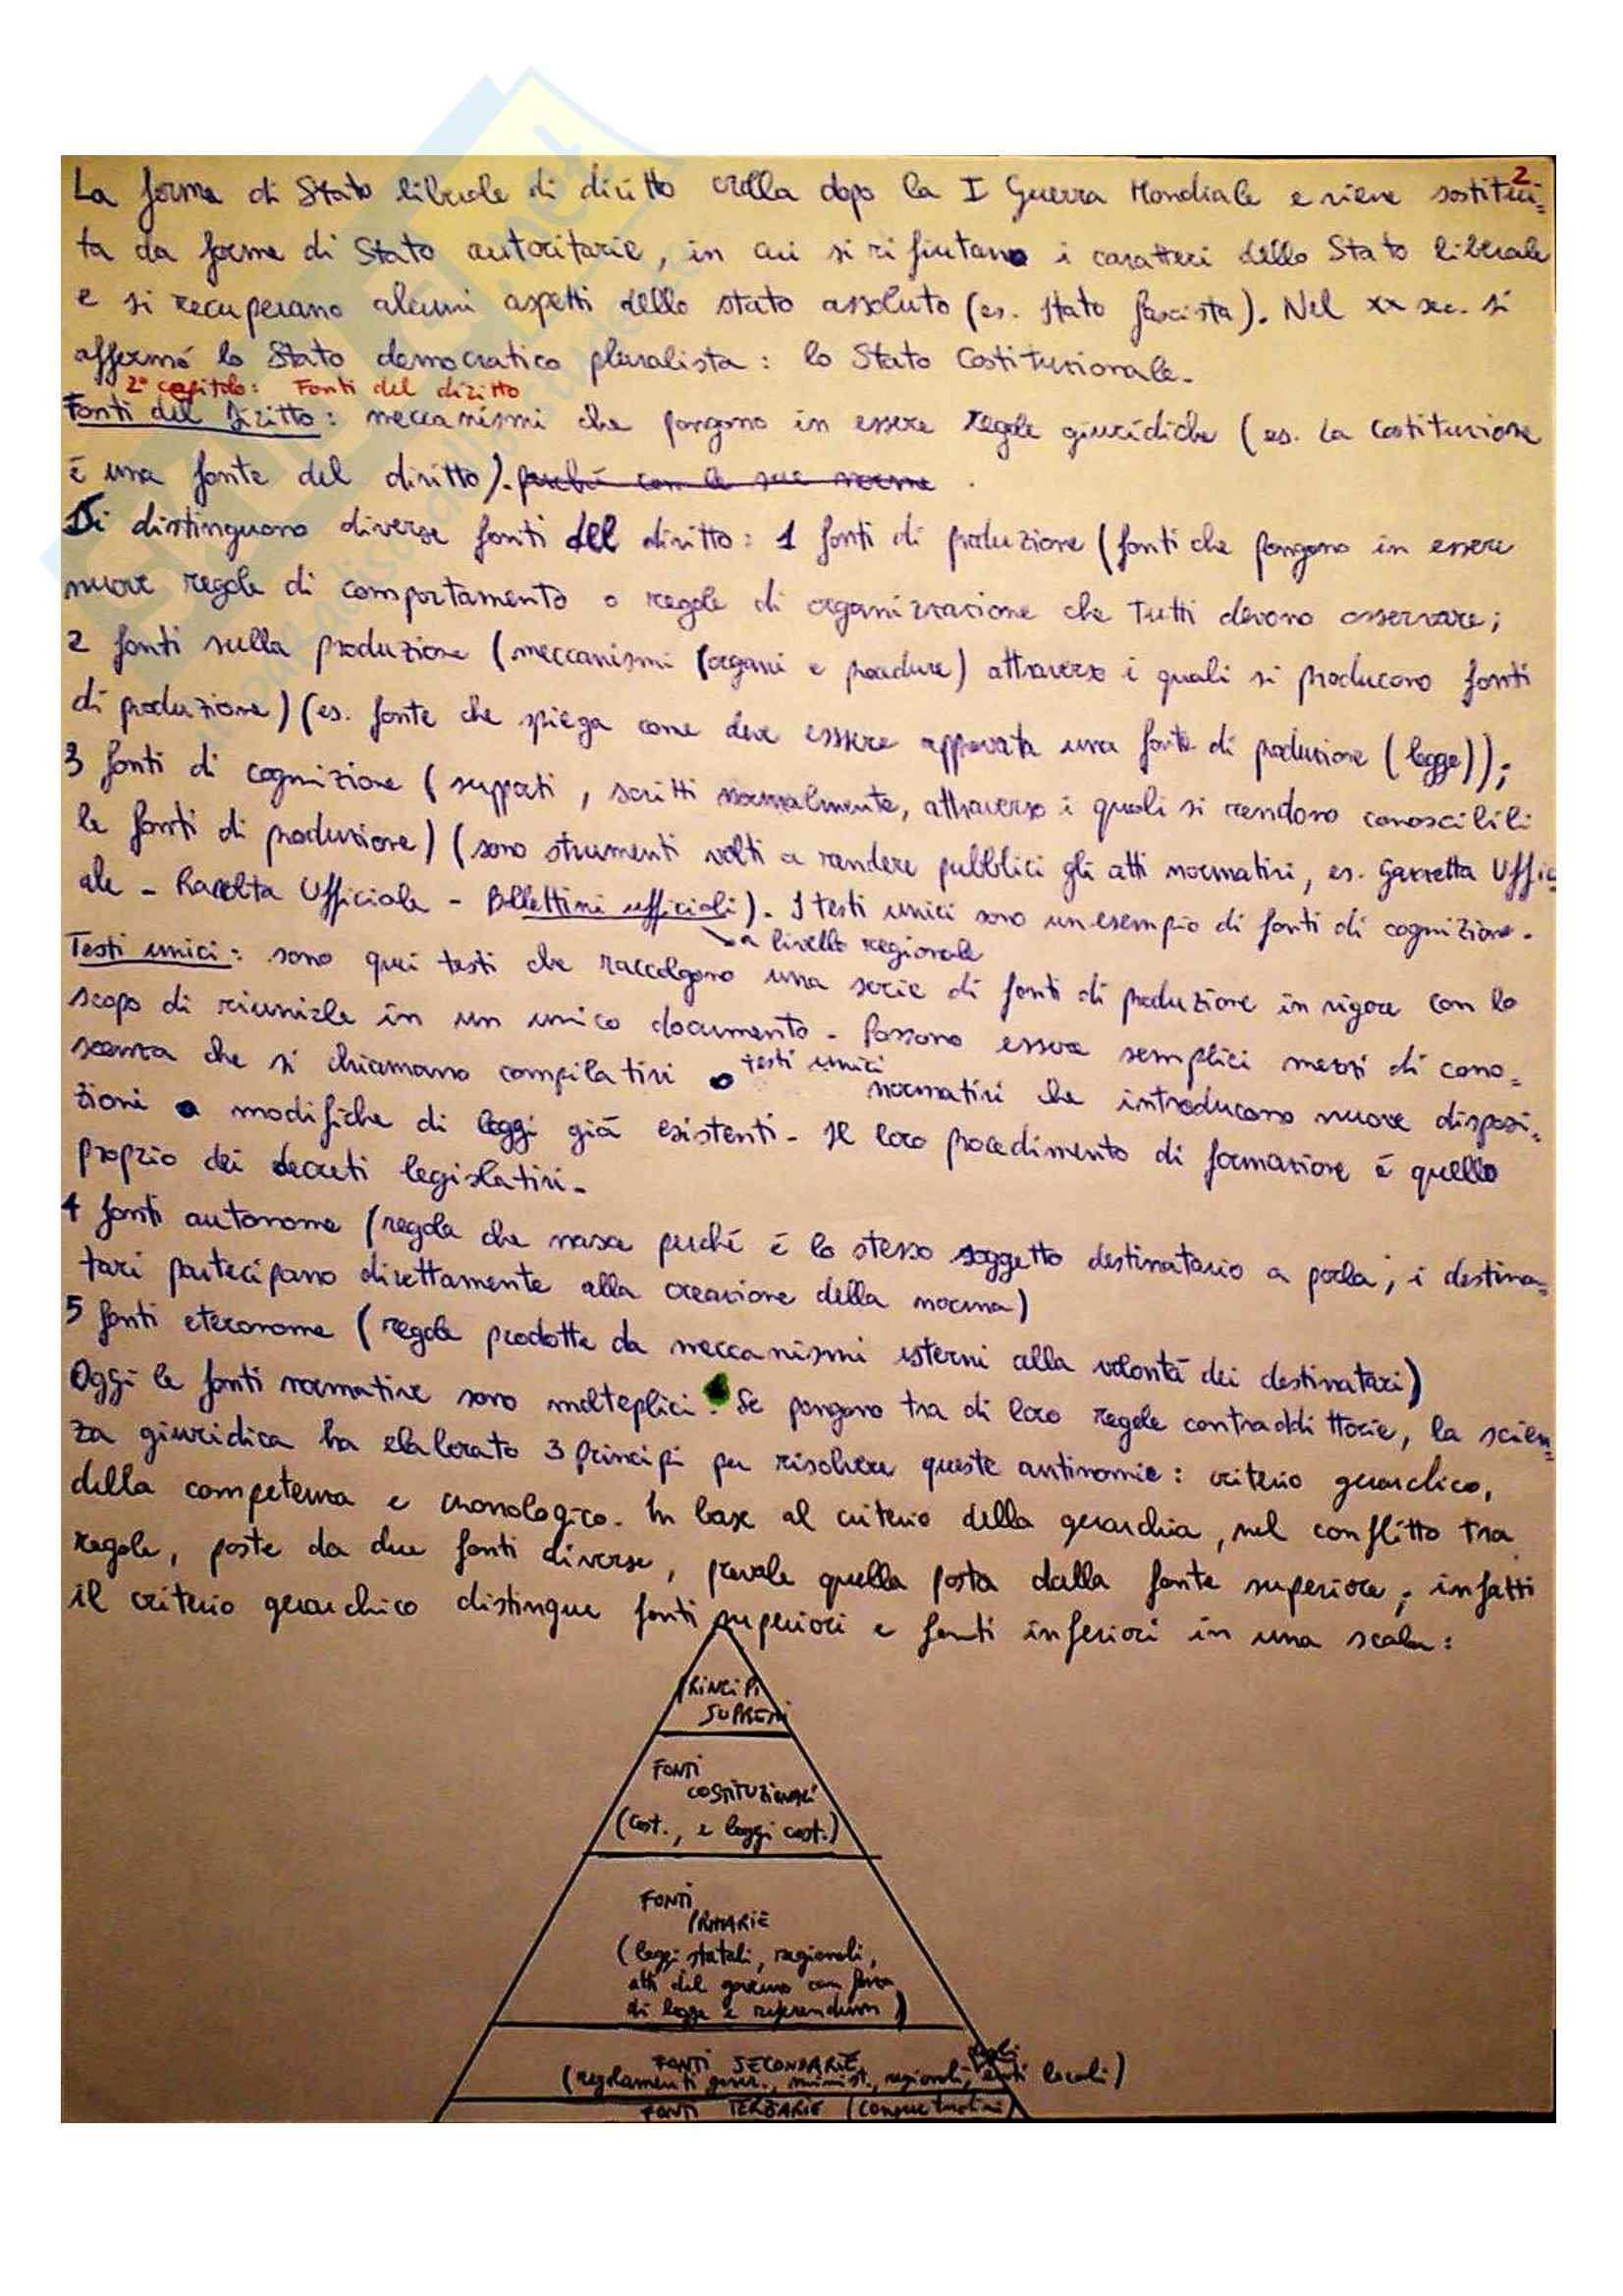 2
La forma di Stato liberale di diritto crolla dopo la I Guerra Mondiale e viene sostitui=
ta da forme di Stato autoritarie, in cui si rifiutano i caratteri dello Stato liberale
e si recuperano alcuni aspetti dello stato assoluto (es. stato fascista). Nel XX sec. si
affermò lo Stato democratico pluralista: lo Stato Costituzionale.
2° capitolo: Fonti del diritto
Fonti del Diritto: meccanismi che pongono in essere regole giuridiche (es. La Costituzione
è una fonte del diritto). perché con le sue norme .
Si distinguono diverse fonti del diritto: 1 fonti di produzione (fonti che pongono in essere
nuove regole di comportamento o regole di organizzazione che tutti devono osservare;
2 fonti sulla produzione (meccanismi (organi e procedure) attraverso i quali si producono fonti
di produzione) (es. fonte che spiega come deve essere approvata una fonte di produzione (legge));
3 fonti di cognizione (supporti, scritti normalmente, attraverso i quali si rendono conoscibili
le fonti di produzione) (sono strumenti volti a rendere pubblici gli atti normativi, es. Gazzetta Uffici
ale - Raccolta Ufficiale - Bollettini ufficiali). I testi unici sono un esempio di fonti di cognizione.
a livello regionale
Testi unici: sono quei testi che raccolgono una serie di fonti di produzione in vigore con lo
scopo di riunirle in un unico documento. Possono essere semplici mezzi di cono=
scenza che si chiamano compilativi o testi unici normativi che introducono nuove disposi=
zioni o modifiche di leggi già esistenti. Il loro procedimento di formazione è quello
proprio dei decreti legislativi.
4 fonti autonome (regola che nasce perché è lo stesso soggetto destinatario a porla; i destina=
tari partecipano direttamente alla creazione della norma)
5 fonti eteronome (regole prodotte da meccanismi esterni alla volontà dei destinatari)
Oggi le fonti normative sono molteplici. Se pongono tra di loro regole contraddittorie, la scien=
za giuridica ha elaborato 3 principi per risolvere queste antinomie: criterio gerarchico,
della competenza e cronologico. In base al criterio della gerarchia, nel conflitto tra
regole, poste da due fonti diverse, prevale quella posta dalla fonte superiore; infatti
il criterio gerarchico distingue fonti superiori e fonti inferiori in una scala:
PRINCIPI
SUPREMI
FONTI
COSTITUZIONALI
(Cost., e leggi cost.)
FONTI
PRIMARIE
(leggi statali, regionali,
atti del governo con forza
di legge e referendum)
FONTI SECONDARIE
(regolamenti gover., minist., regionali, degli enti locali)
FONTI TERZIARIE (consuetudini)